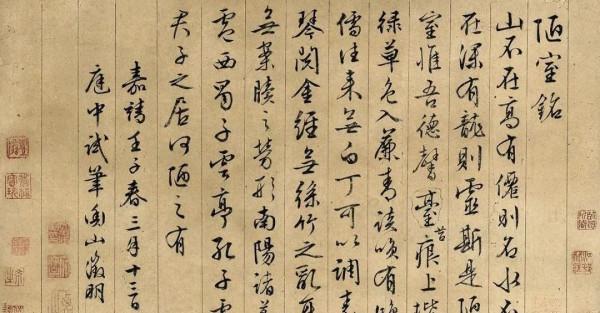 陋室銘
山不在高有僊則名水不
在深有龍則靈斯是陋
室惟吾德馨臺苔痕上堦
緑草色入簾青談咲有鴻
儒往来無白丁可以調素
琴閱金經無絲竹之亂耳
無案牘之勞形南陽諸葛
廬西蜀子雲亭孔子雲
君子之居何陋之有
嘉靖壬子春三月十三日
庭中試筆衡山徵明